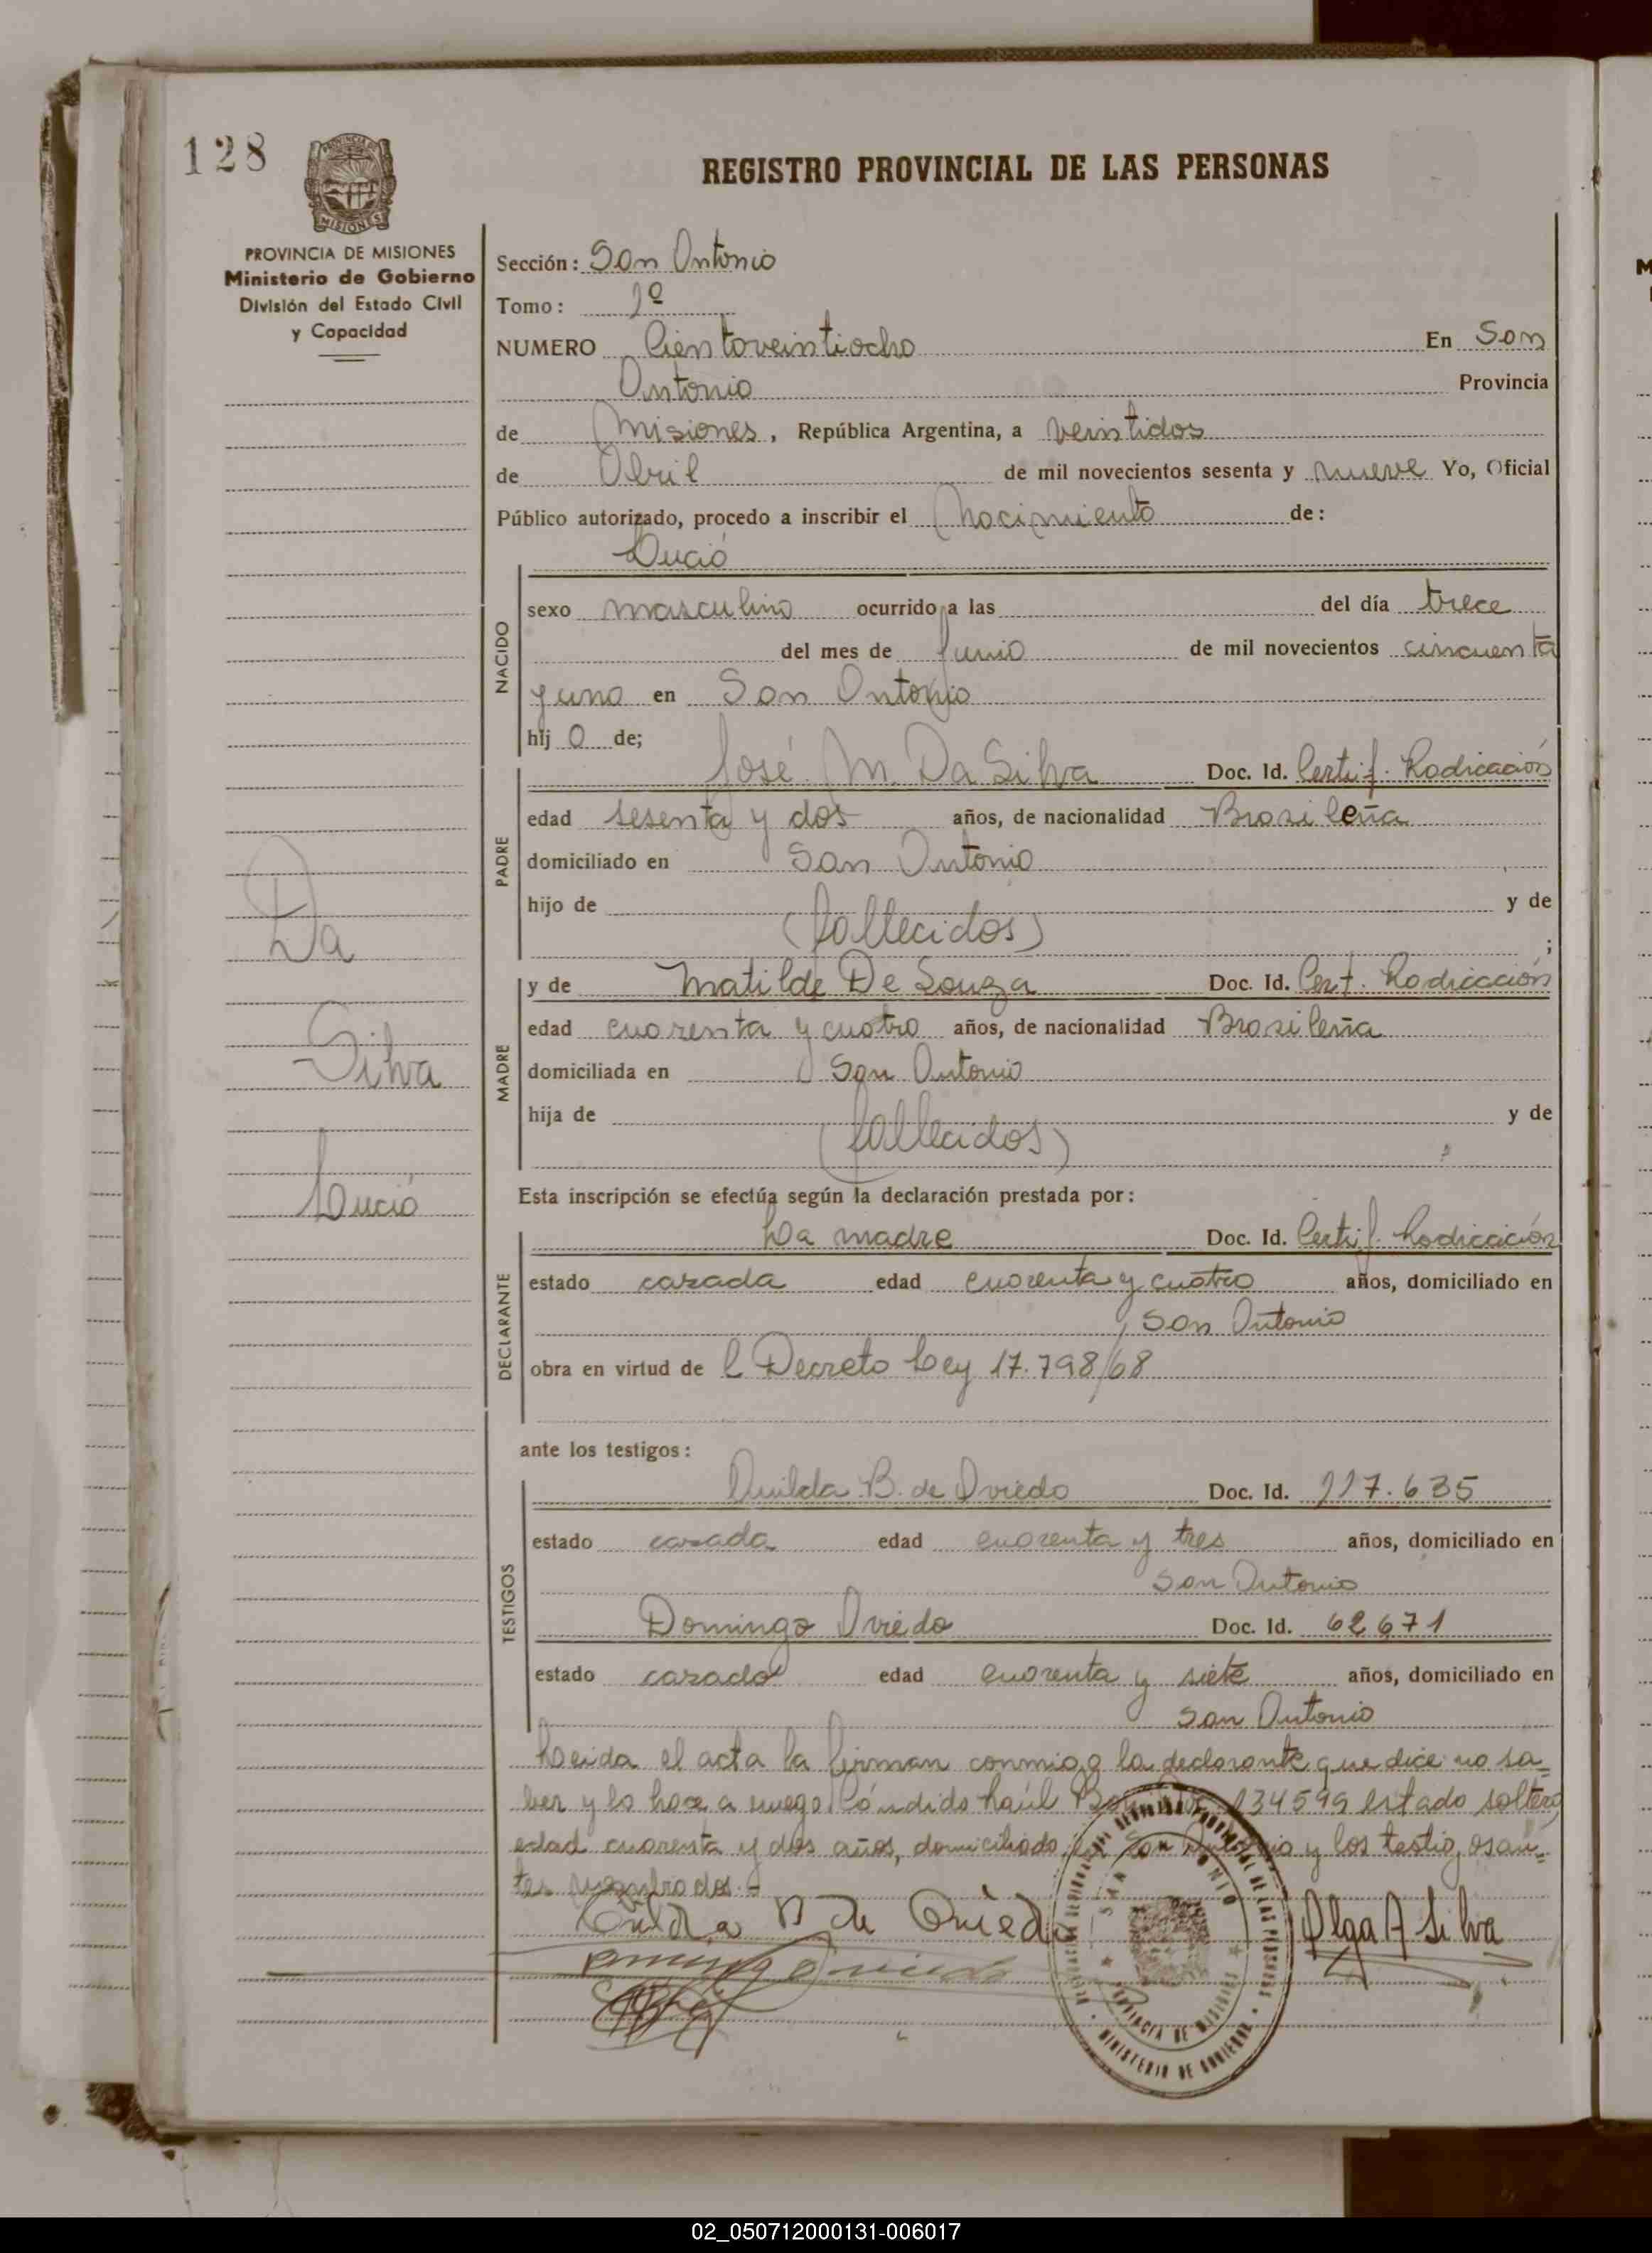 128
REGISTRO PROVINCIAL DE LAS PERSONAS
PROVINCIA DE MISIONES
Ministerio de Gobierno
División del Estado Civil
y Capacidad
Sección: San Antonio
Tomo: 1º
NUMERO Cientoveintiocho En San
Antonio Provincia
de Misiones, República Argentina, a veintidos
de Abril de mil novecientos sesenta y nueve Yo, Oficial
Público autorizado, procedo a inscribir el Nacimiento de:
Lució
NACIDO
sexo masculino ocurrido a las del día trece
del mes de Junio de mil novecientos cincuenta
y uno en San Antonio
hij o de;
PADRE
José M. Da Silva Doc. Id. Certif. Radicación
edad sesenta y dos años, de nacionalidad Brasileña
domiciliado en San Antonio
hijo de y de
(fallecidos) ;
MADRE
y de Matilde De Souza Doc. Id. Cert. Radicación
edad cuarenta y cuatro años, de nacionalidad Brasileña
domiciliada en San Antonio
hija de y de
(fallecidos)
Da
Silva
Lució
Esta inscripción se efectúa según la declaración prestada por:
DECLARANTE
La madre Doc. Id. Certif. Radicación
estado casada edad cuarenta y cuatro años, domiciliado en
San Antonio
obra en virtud de l Decreto Ley 17.798/68
ante los testigos:
TESTIGOS
B. de Oviedo Doc. Id. 117.635
estado casada edad cuarenta y tres años, domiciliado en
San Antonio
Domingo Oviedo Doc. Id. 62671
estado casado edad cuarenta y siete años, domiciliado en
San Antonio
Leida el acta la firman conmigo la declarante que dice no sa-
ber y lo hace a ruego Cándido Raúl 134599 estado soltero
edad cuarenta y dos años, domiciliado en San Antonio y los testigos an-
tes nombrados.-
de Oviedo
Olga A Silva
SAN ANTONIO
PROVINCIA DE MISIONES
MINISTERIO DE GOBIERNO
02_050712000131-006017